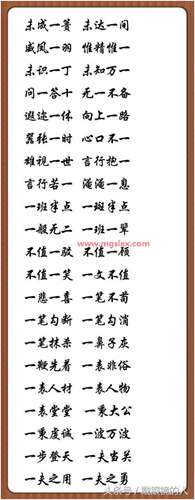 未成一篑 未达一间
威凤一羽 惟精惟一
未识一丁 未知万一
问一答十 无一不备
遐迩一体 向上一路
嚣张一时 心口不一
雄视一世 言行抱一
言行若一 淹淹一息
一班半点 一斑半点
一般无二 一班一辈
不值一驳 不值一顾
www.mgslxx.com
不值一笑 一文不值
一悲一喜 一笔不苟
一笔勾断 一笔勾消
一笔抹杀 一鼻子灰
一鞭先着 一表非俗
一表人材 一表人物
一表堂堂 一秉大公
一秉虔诚 一波万波
一步登天 一夫当关
一夫之用 一夫之勇